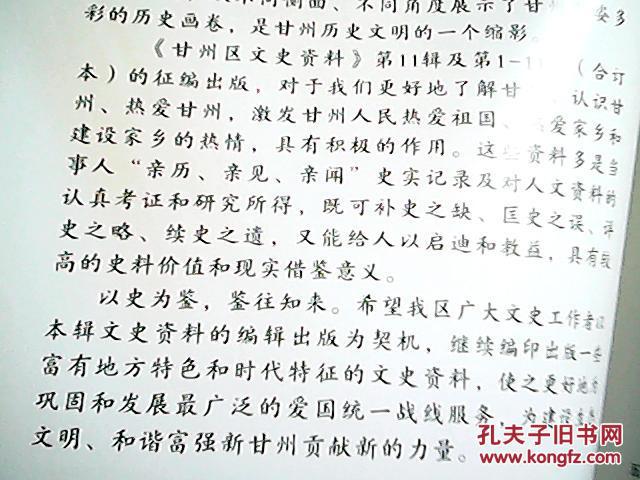 同侧面、不同角度展示了甘州 姿多
彩的历史画卷，是甘州历史文明的一个缩影。
《甘州区文史资料》第11辑及第1-1 （合订
本）的征编出版，对于我们更好地了解甘 、认识甘
州、热爱甘州，激发甘州人民热爱祖国、 爱家乡和
建设家乡的热情，具有积极的作用。这 资料多是当
事人“亲历、亲见、亲闻”史实记录及对人文资料的
认真考证和研究所得，既可补史之缺、匡史之误、详
史之略、续史之遗，又能给人以启迪和教益，具有较
高的史料价值和现实借鉴意义。
以史为鉴，鉴往知来。希望我区广大文史工作者以
本辑文史资料的编辑出版为契机，继续编印出版一些
富有地方特色和时代特征的文史资料，使之更好地为
巩固和发展最广泛的爱国统一战线服务，为建设
文明、和谐富强新甘州贡献新的力量。
孔夫子旧书网
www.kongfz.com